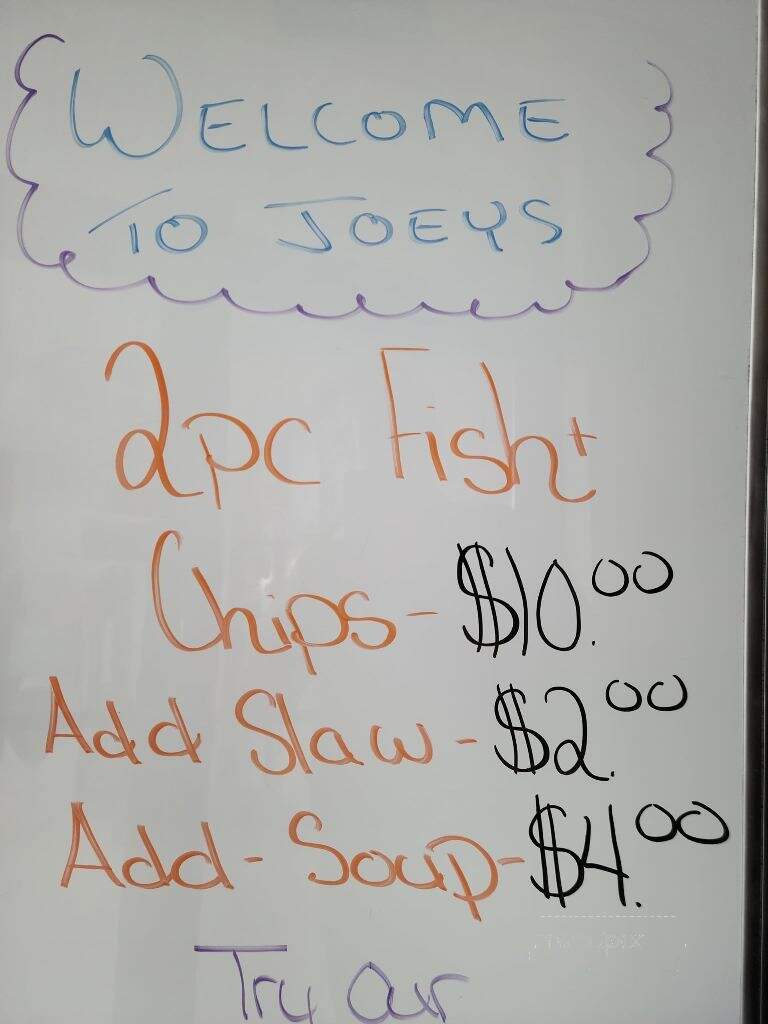 WELCOME
TO JOEYS
2pc Fish +
Chips - $10.00
Add Slaw - $2.00
Add - Soup - $4.00
Try Our